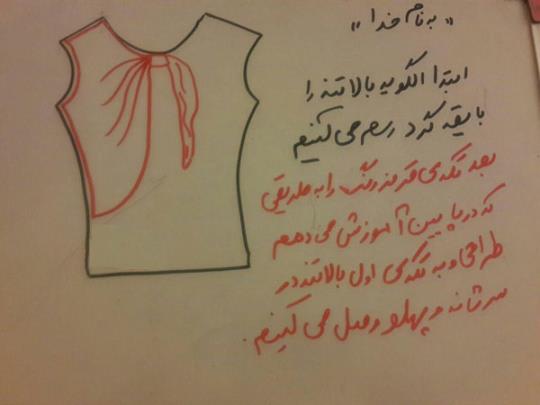 "به نام خدا"
ابتدا الگوی بالاتنه را
با یقه گرد رسم می کنیم
بعد تکه ی قرمز رنگ را به طریقی
که در پایین آموزش می دهم
طراحی و به تکه ی اول بالاتنه در
سرشانه و پهلو وصل می کینم